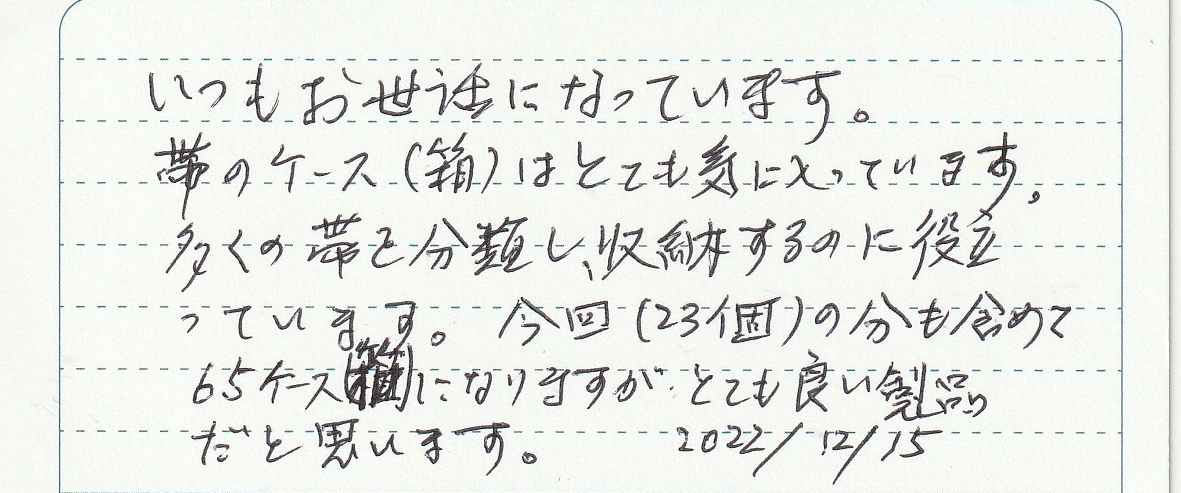 いつもお世話になっています。
帯のケース(箱)はとても気に入っています。
多くの帯を分類し、収納するのに役立
っています。今回(23個)の分も含めて
65ケース(箱)になりますが、とても良い製品
だと思います。 2022/12/15